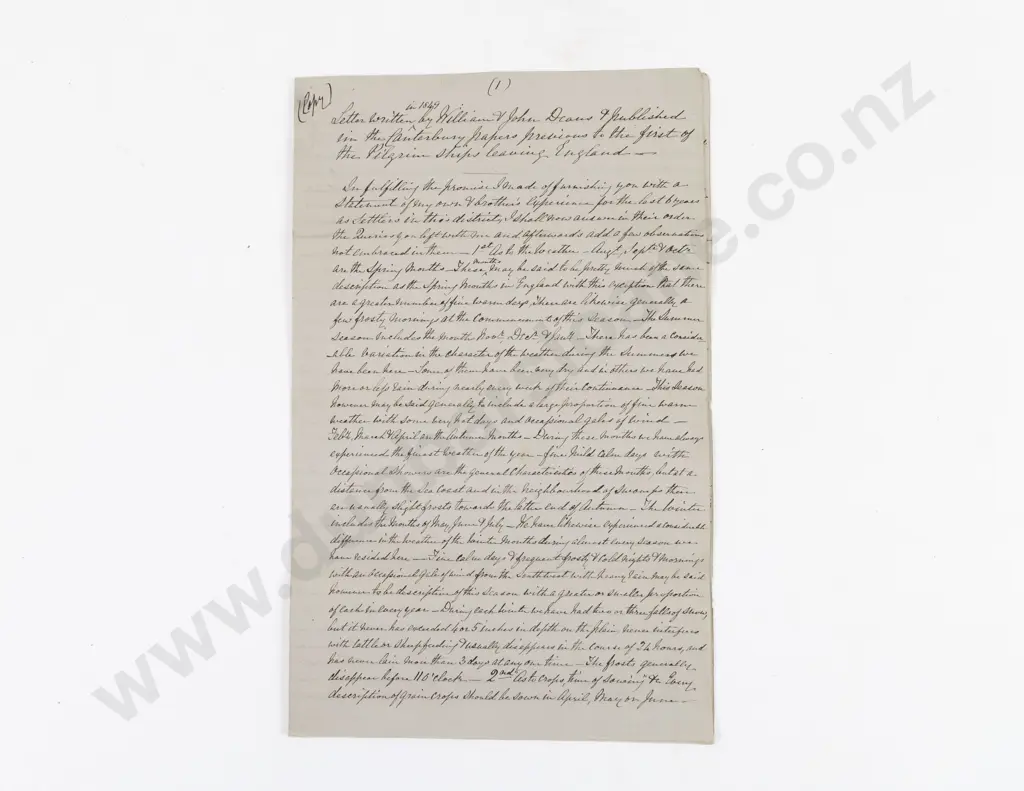 (Copy)
(1)
in 1849
Letter written by William & John Deans & published
in the Canterbury papers previous to the first of
the Pilgrim ships leaving England —
In fulfilling the promise I made of furnishing you with a
statement of my own & brothers experience for the last 6 years
as settlers in this district, I shall now answer in their order
the Queries you left with me and afterwards add a few observations
not embraced in them — 1st As to the Weather — Augt, Septr & Octr
are the Spring Months — These months may be said to be pretty much of the same
description as the Spring Months in England with this exception that there
are a greater number of fine warm days, there are likewise generally a
few frosty mornings at the commencement of this season — The Summer
season includes the month Novr, Decr & Jany — There has been a consider
-able variation in the character of the weather during the Summers we
have been here — Some of them have been very dry and in others we have had
more or less rain during nearly every week of their continuance — This season
however may be said generally to include a large proportion of fine warm
weather with some very hot days and occasional gales of wind —
Feby, March & April are the Autumn Months — During these months we have always
experienced the finest weather of the year — fine mild calm days with
occasional showers are the general characteristics of these months, but at a
distance from the Sea Coast and in the neighbourhood of Swamps there
are usually slight frosts towards the latter end of Autumn — The Winter
includes the months of May, June & July — We have likewise experienced a considerable
difference in the weather of the Winter months during almost every season we
have resided here — Fine calm days & frequent frosty & cold nights & mornings
with an occasional gale of wind from the South west with heavy rain may be said
however to be descriptive of this season with a greater or smaller proportion
of each in every year — During each winter we have had two or three falls of snow,
but it never has exceeded 4 or 5 inches in depth on the plain, never interferes
with cattle or sheep feeding & usually disappears in the course of 24 hours, and
has never lain more than 3 days at any one time — The frosts generally
disappear before 11 O'clock — 2nd As to Crops, time of Sowing &c Every
description of Grain Crops should be sown in April, May or June —
www.dunbarsloane.co.nz